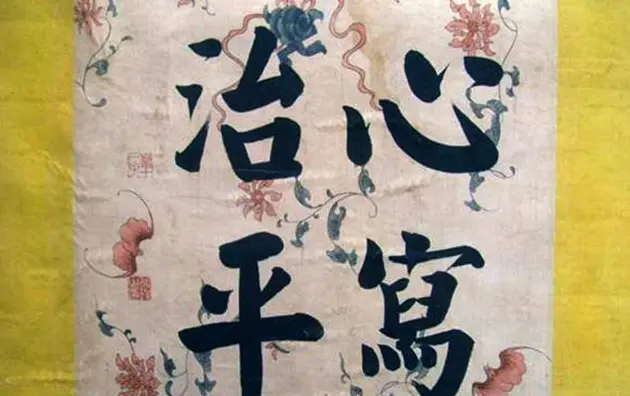 心寫
治平